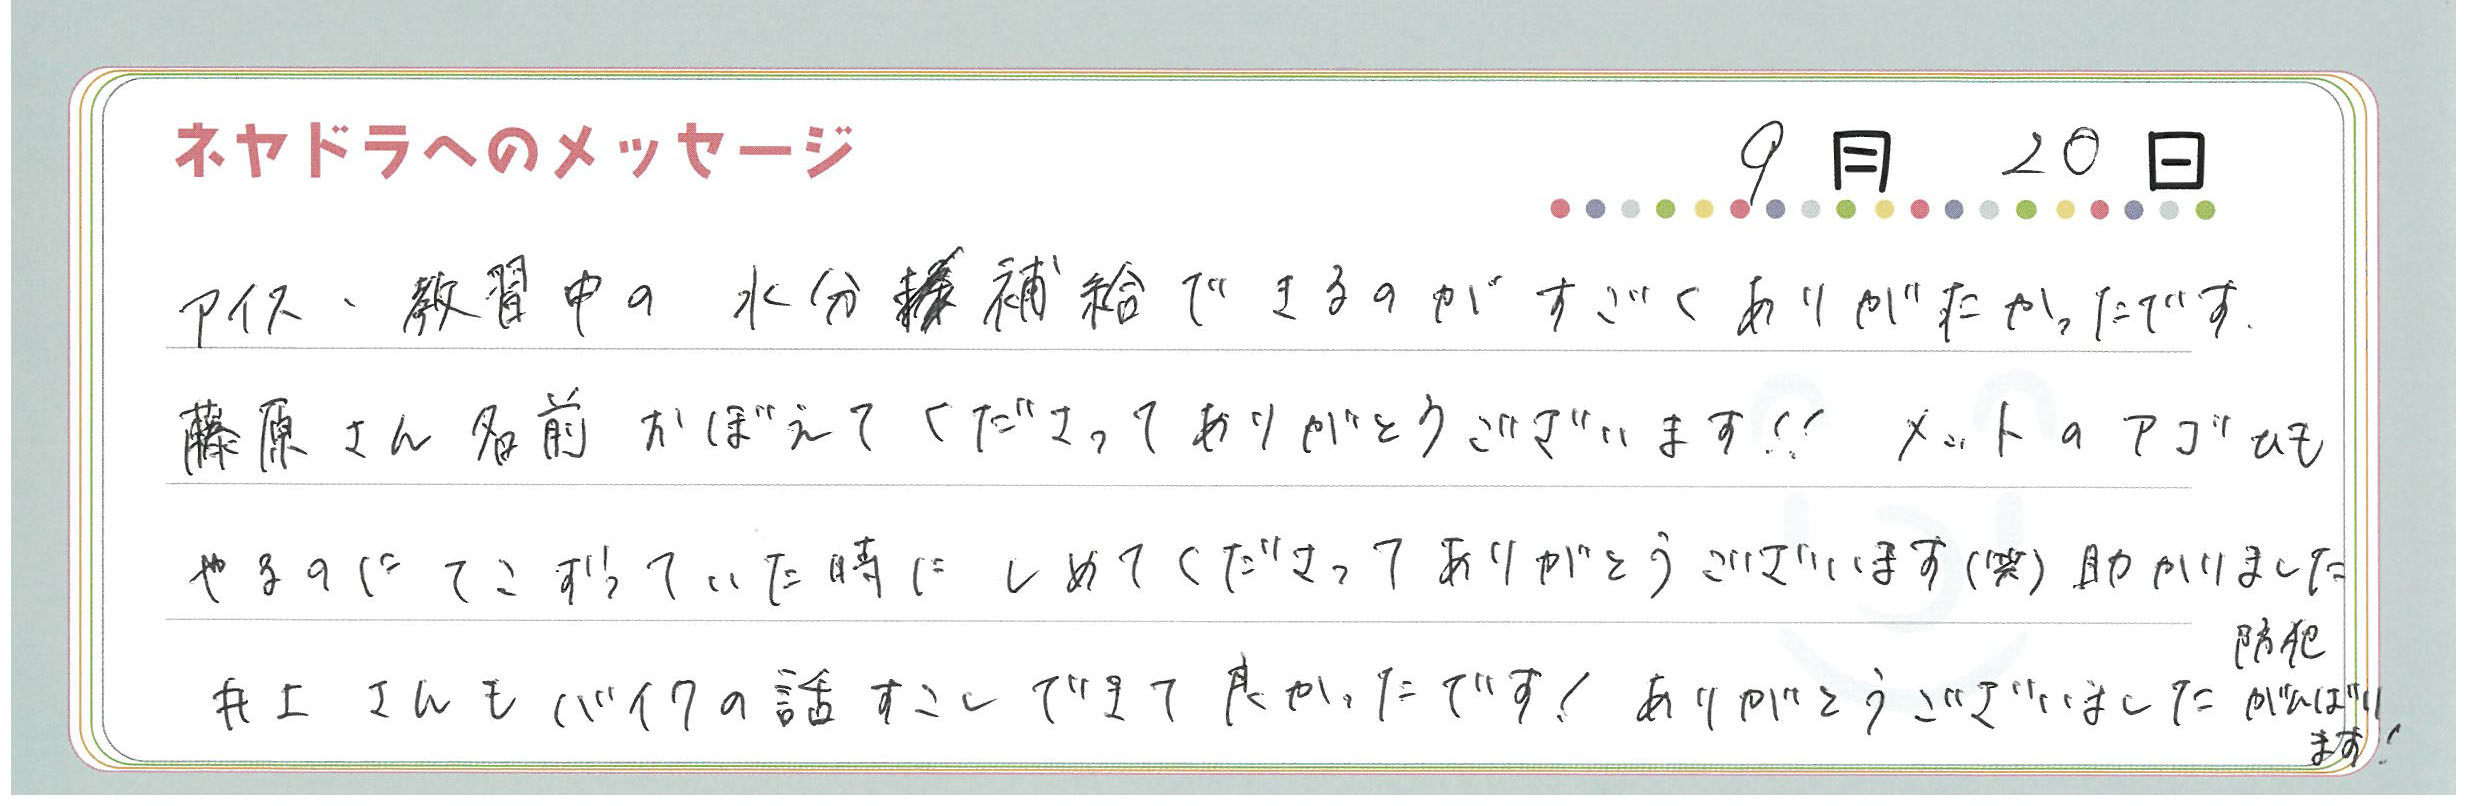 ネヤドラへのメッセージ
9月 20日
アイス、教習中の 水分補給できるのが すごく ありがたかったです.
藤原さん 名前 おぼえて くださって ありがとうございます!! メットのアゴひも
やるのに てこずっていた時に しめてくださって ありがとうございます(笑) 助かりました
井上さんも バイクの話 すこしできて 良かったです! ありがとうございました 防犯
がんばり
ます!